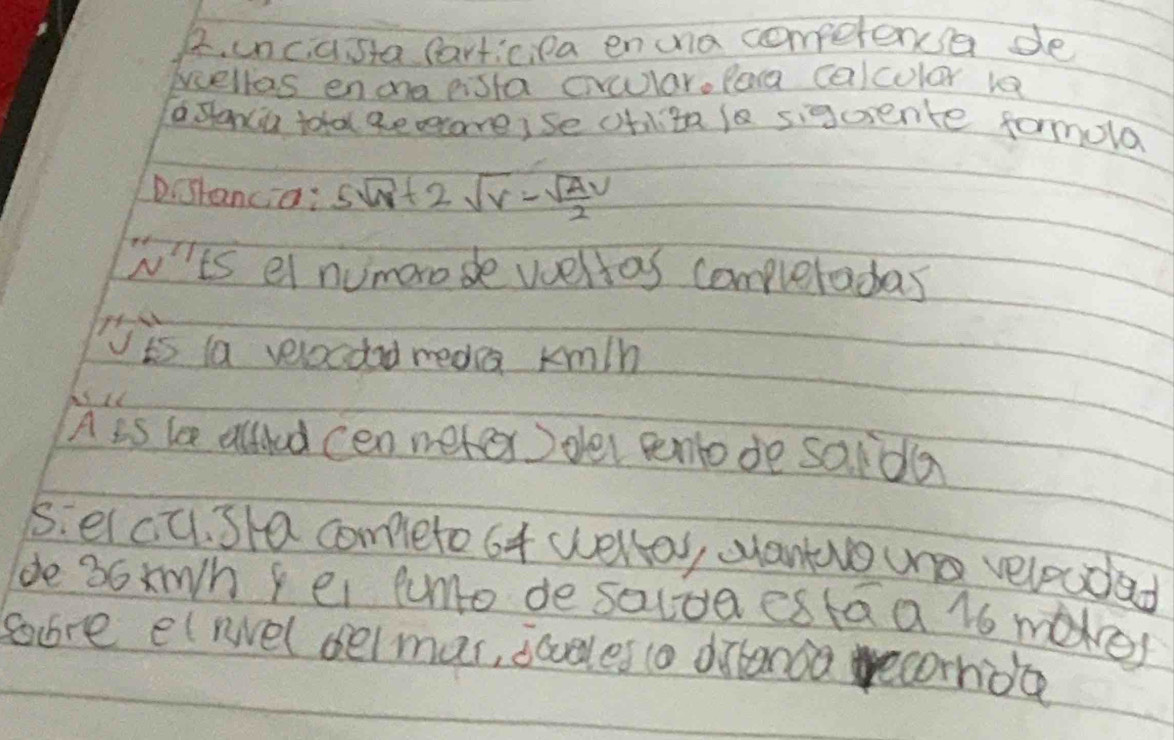 2. un ciclista participa en una competencia de
vueltas en una pista circular. Para calcular la
distancia total se utiliza la siguiente formula
Distancia: 5√N + 2 √V - √AV/2
"N" Es el numero de vueltas completadas
"V" Es la velocidad media km/h
"A" Es la altitud (en metros) del punto de salida
Si el ciclista completo 64 vueltas, mantuvo una velocidad
de 36 km/h y el punto de salida esta a 16 metros
sobre el nivel del mar, ¿cual es la distancia recorrida